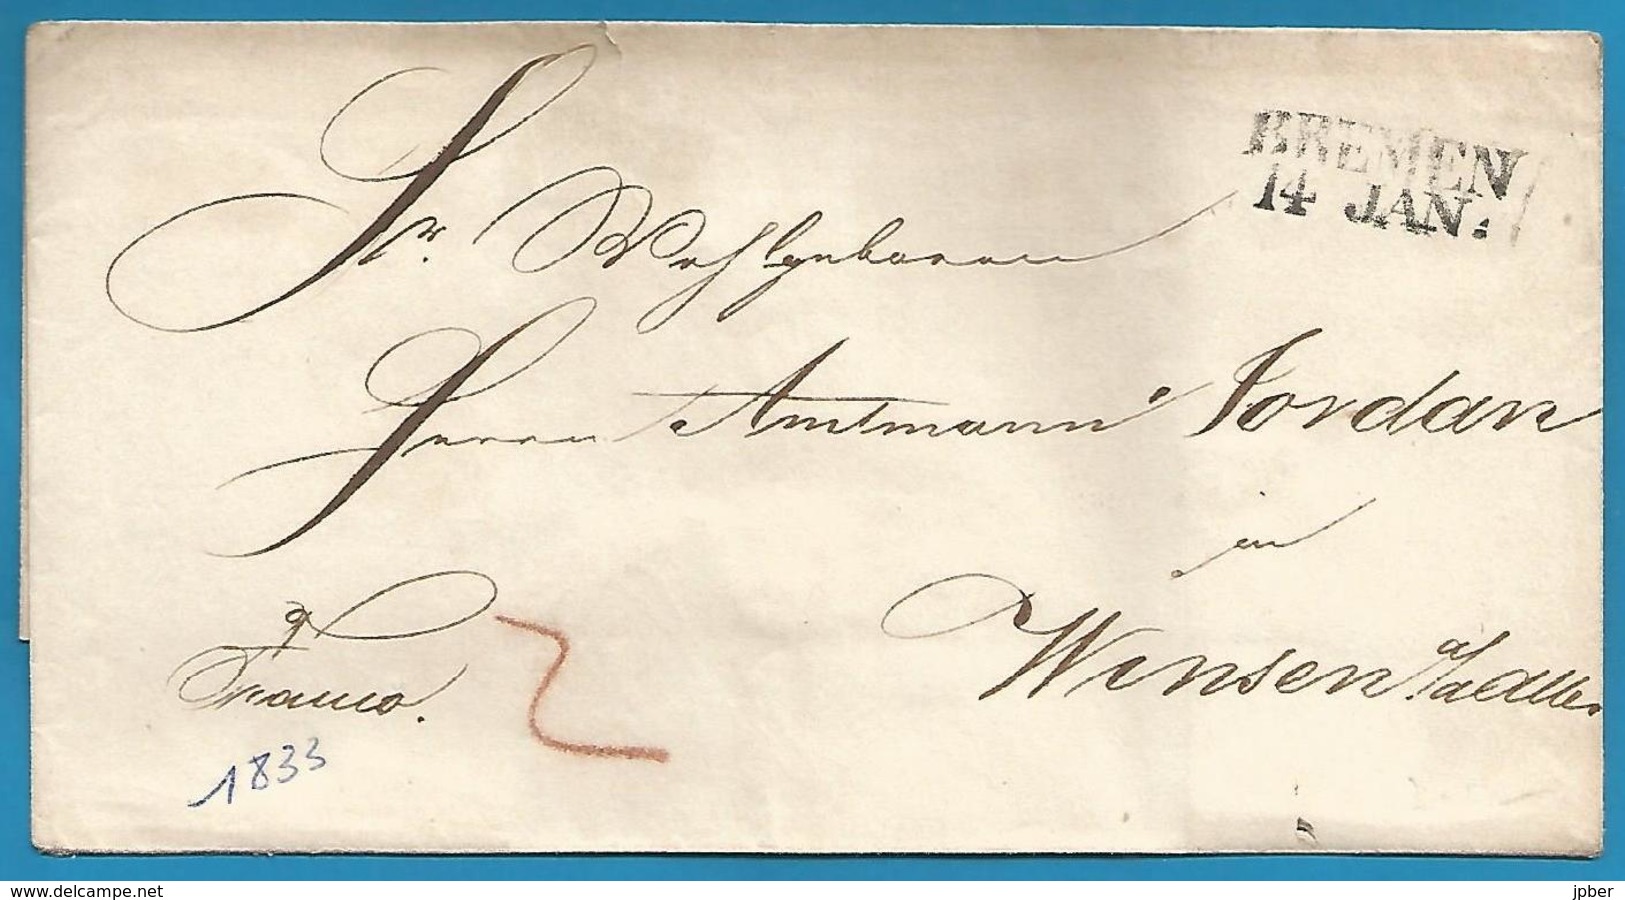 BREMEN
14 JAN.
Sr. Wohlgeboren
Herrn Amtmann Jordan
in
Winsen a/d Aller.
Franco.
2
1833
www.delcampe.net
jpber